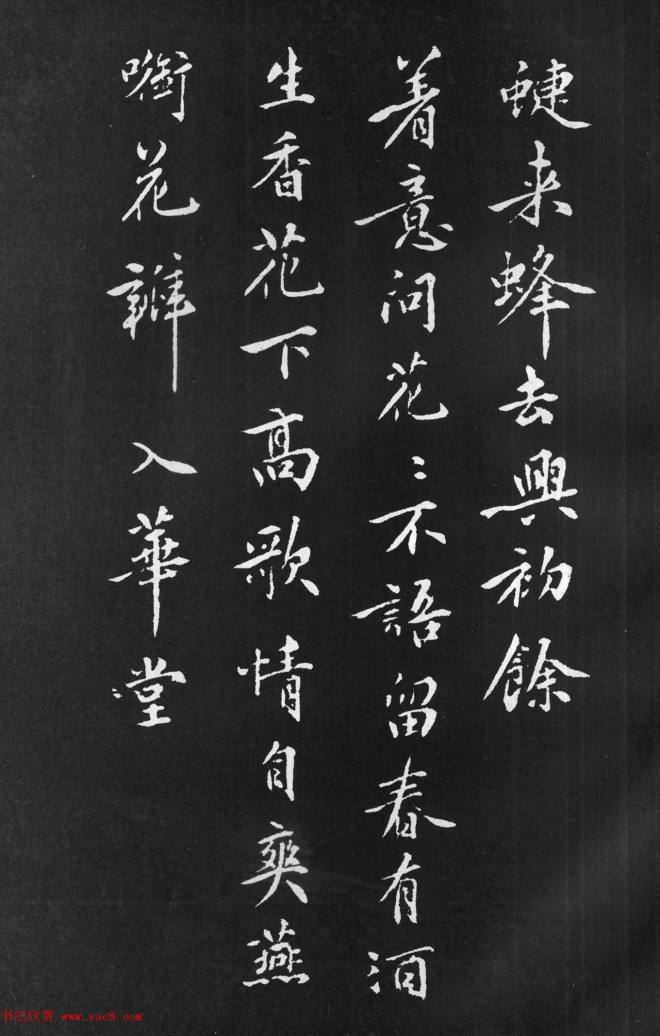 蜨来蜂去興初餘
着意问花〻不語留春有酒
生香花下高歌情自爽燕
啣花瓣入華堂
书法欣赏 www.yac8.com